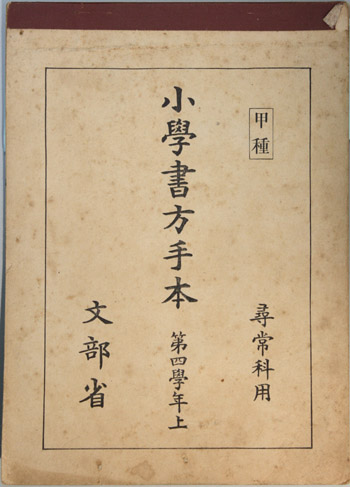 甲種
尋常科用
小學書方手本
第四學年上
文部省